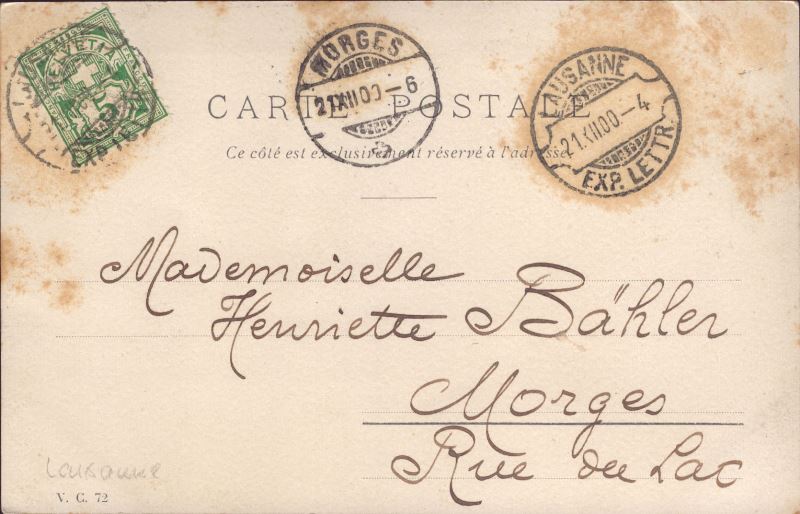 HELVETIA
MORGES
21.XII.00–6
LAUSANNE
21.XII.00–4
EXP. LETTR.
CARTE POSTALE
Ce côté est exclusivement réservé à l'adresse.
Mademoiselle
Henriette Bähler
Morges
Rue du Lac
Lausanne
V. G. 72